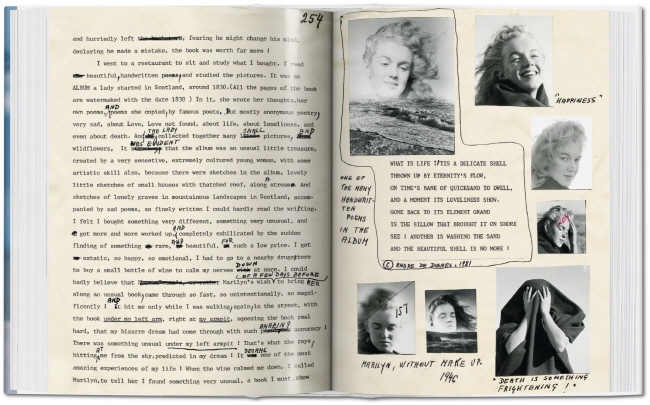 254
and hurriedly left , fearing he might change his mind,
declaring he made a mistake. the book was worth far more !
I went to a restaurant to sit and study what I bought. I read
beautiful, handwritten poems, and studied the pictures. It was an
ALBUM a lady started in Scotland, around 1830.(All the pages of the book
are watermarked with the date 1830 ) In it, she wrote her thoughts, her
own poems, AND poems she copied, by famous poets, But mostly anonymous poetry
very sad, about Love, Love not found, about life, about loneliness, and
even about death. And, THE LADY collected together many SMALL pictures, AND
wildflowers. It WAS EVIDENT that the album was an unusual little treasure,
created by a very sensetive, extremely cultured young woman, with some
artistic skill also, because there were sketches in the album, lovely
little sketches of small houses with thatched roof, along A stream. And
sketches of lonely graves in mountainous landscapes in Scotland, accom-
panied by sad poems, so finely written I could hardly read the writing.
I felt I bought something very different, something very unusual, and
I got more and more worked up, AND completely exhilirated by the sudden
finding of something so rare, AND beautiful FOR such a low price. I got
so extatic, so happy, so emotional, I had to go to a nearby drugstore
to buy a small bottle of wine to calm my nerves DOWN at once. I could
hadly believe that Marilyn's wish (OF A FEW DAYS BEFORE) to bring HER
along an unusual book, came through so fast, so unintentionally, so magni-
ficently ! AND It hit me only while I was walking, again, in the street, with
the book under my left arm, right at my armpit, sqeezing the book real
hard, that my bizarre dream had come through with such AMAZING accuracy !
There was something unusual under my left armpit ! That's what the rays,
hitting AT me from the sky, predicted in my dream ! It BECAME one of the most
amazing experiences of my life ! When the wine calmed me down, I called
Marilyn, to tell her I found something very unusual, a book I must show
"HAPPINESS"
ONE OF
THE MANY
HANDWRIT-
TEN
POEMS
IN THE
ALBUM
WHAT IS LIFE ? ITS A DELICATE SHELL
THROWN UP BY ETERNITY'S FLOW,
ON TIME'S BANK OF QUICKSAND TO DWELL,
AND A MOMENT ITS LOVELINESS SHOW.
GONE BACK TO ITS ELEMENT GRAND
IS THE BILLOW THAT BROUGHT IT ON SHORE
SEE ! ANOTHER IS WASHING THE SAND
AND THE BEAUTIFUL SHELL IS NO MORE !
© ANDRE DE DIENES, 1981
1ST
MARILYN, WITHOUT MAKE UP.
1946
"DEATH IS SOMETHING
FRIGHTENING !"